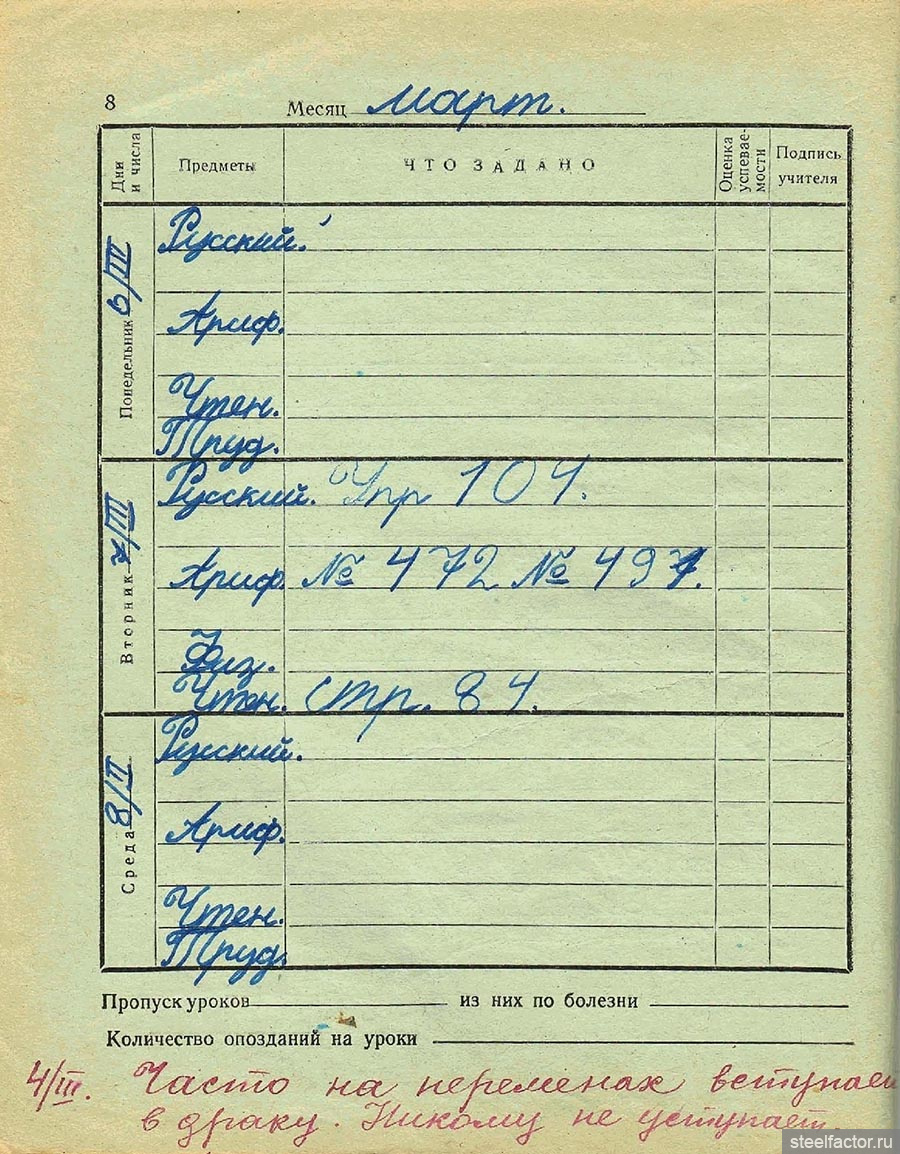 8
Месяц март.
Дни и числа Предметы ЧТО ЗАДАНО Оценка успевае-мости Подпись учителя
Понедельник 6/III
Русский.
Ариф.
Чтен.
Труд.
Вторник 7/III
Русский. Упр 104.
Ариф. № 472 № 497.
Физ.
Чтен. стр. 84.
Среда 8/II
Русский.
Ариф.
Чтен.
Труд.
Пропуск уроков из них по болезни
Количество опозданий на уроки
4/III. Часто на переменах вступает
в драку. Никому не уступает.
steelfactor.ru